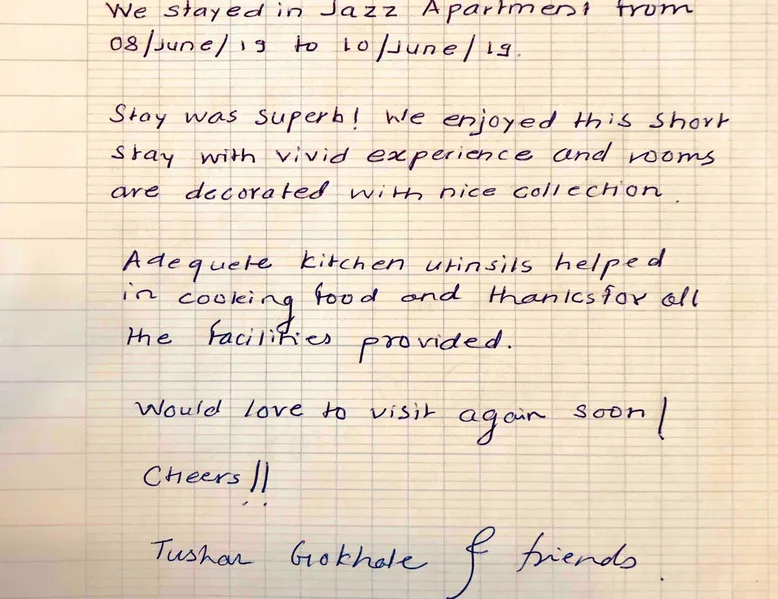 We stayed in Jazz Apartment from
08/June/19 to 10/June/19.
Stay was superb! We enjoyed this short
stay with vivid experience and rooms
are decorated with nice collection.
Adequete kitchen utinsils helped
in cooking food and thanks for all
the facilities provided.
Would love to visit again soon!
Cheers!!
Tushar Gokhale & friends.